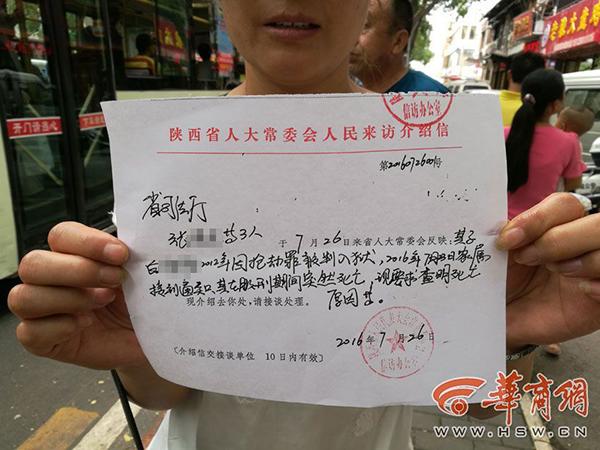 信访办公室
陕西省人大常委会人民来访介绍信
第2016072600号
省司法厅
张 等3人 于 7 月 26 日来省人大常委会反映:其子
白 2012年因抢劫罪被判入狱,2016年7月3日家属
接到通知,其在服刑期间突然死亡,现要求查明死亡
原因等。
现介绍去你处,请接谈处理。
2016年 7 月 26 日
信访办公室
〔介绍信交接谈单位 10日内有效〕
华商网
WWW.HSW.CN